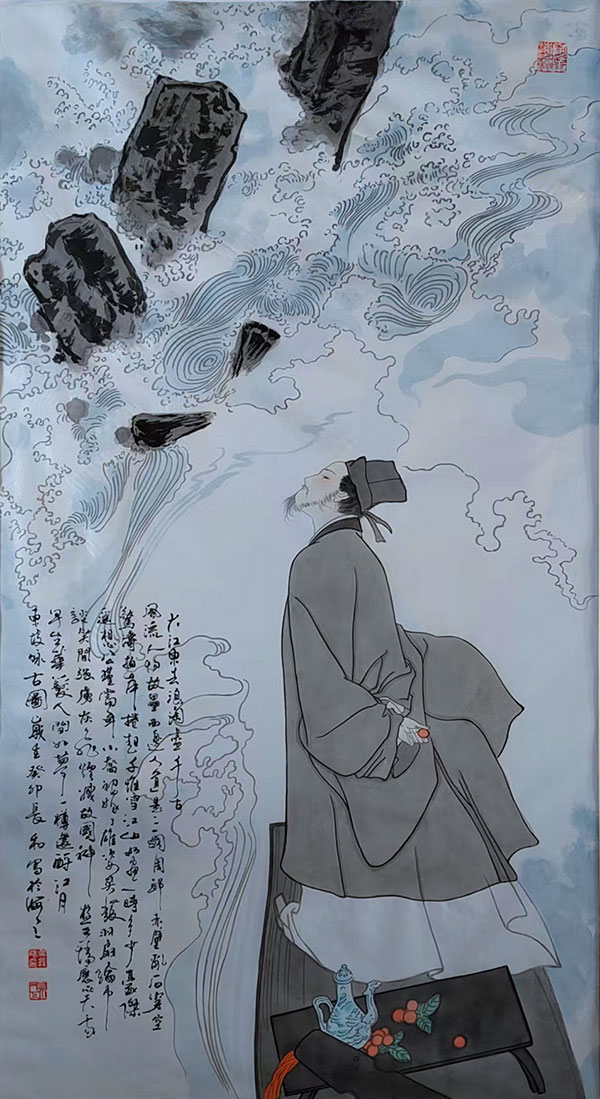 大江東去浪淘盡千古
風流人物故壘西邊人道是三國周郎赤壁亂石穿空
驚濤拍岸捲起千堆雪江山如畫一時多少豪傑
遥想公瑾當年小喬初嫁了雄姿英發羽扇綸巾
談笑間强虜灰飛煙滅故國神遊多情應笑我
早生華髮人間如夢一樽還酹江月
東坡詠古圖歲在癸卯長和寫於海上